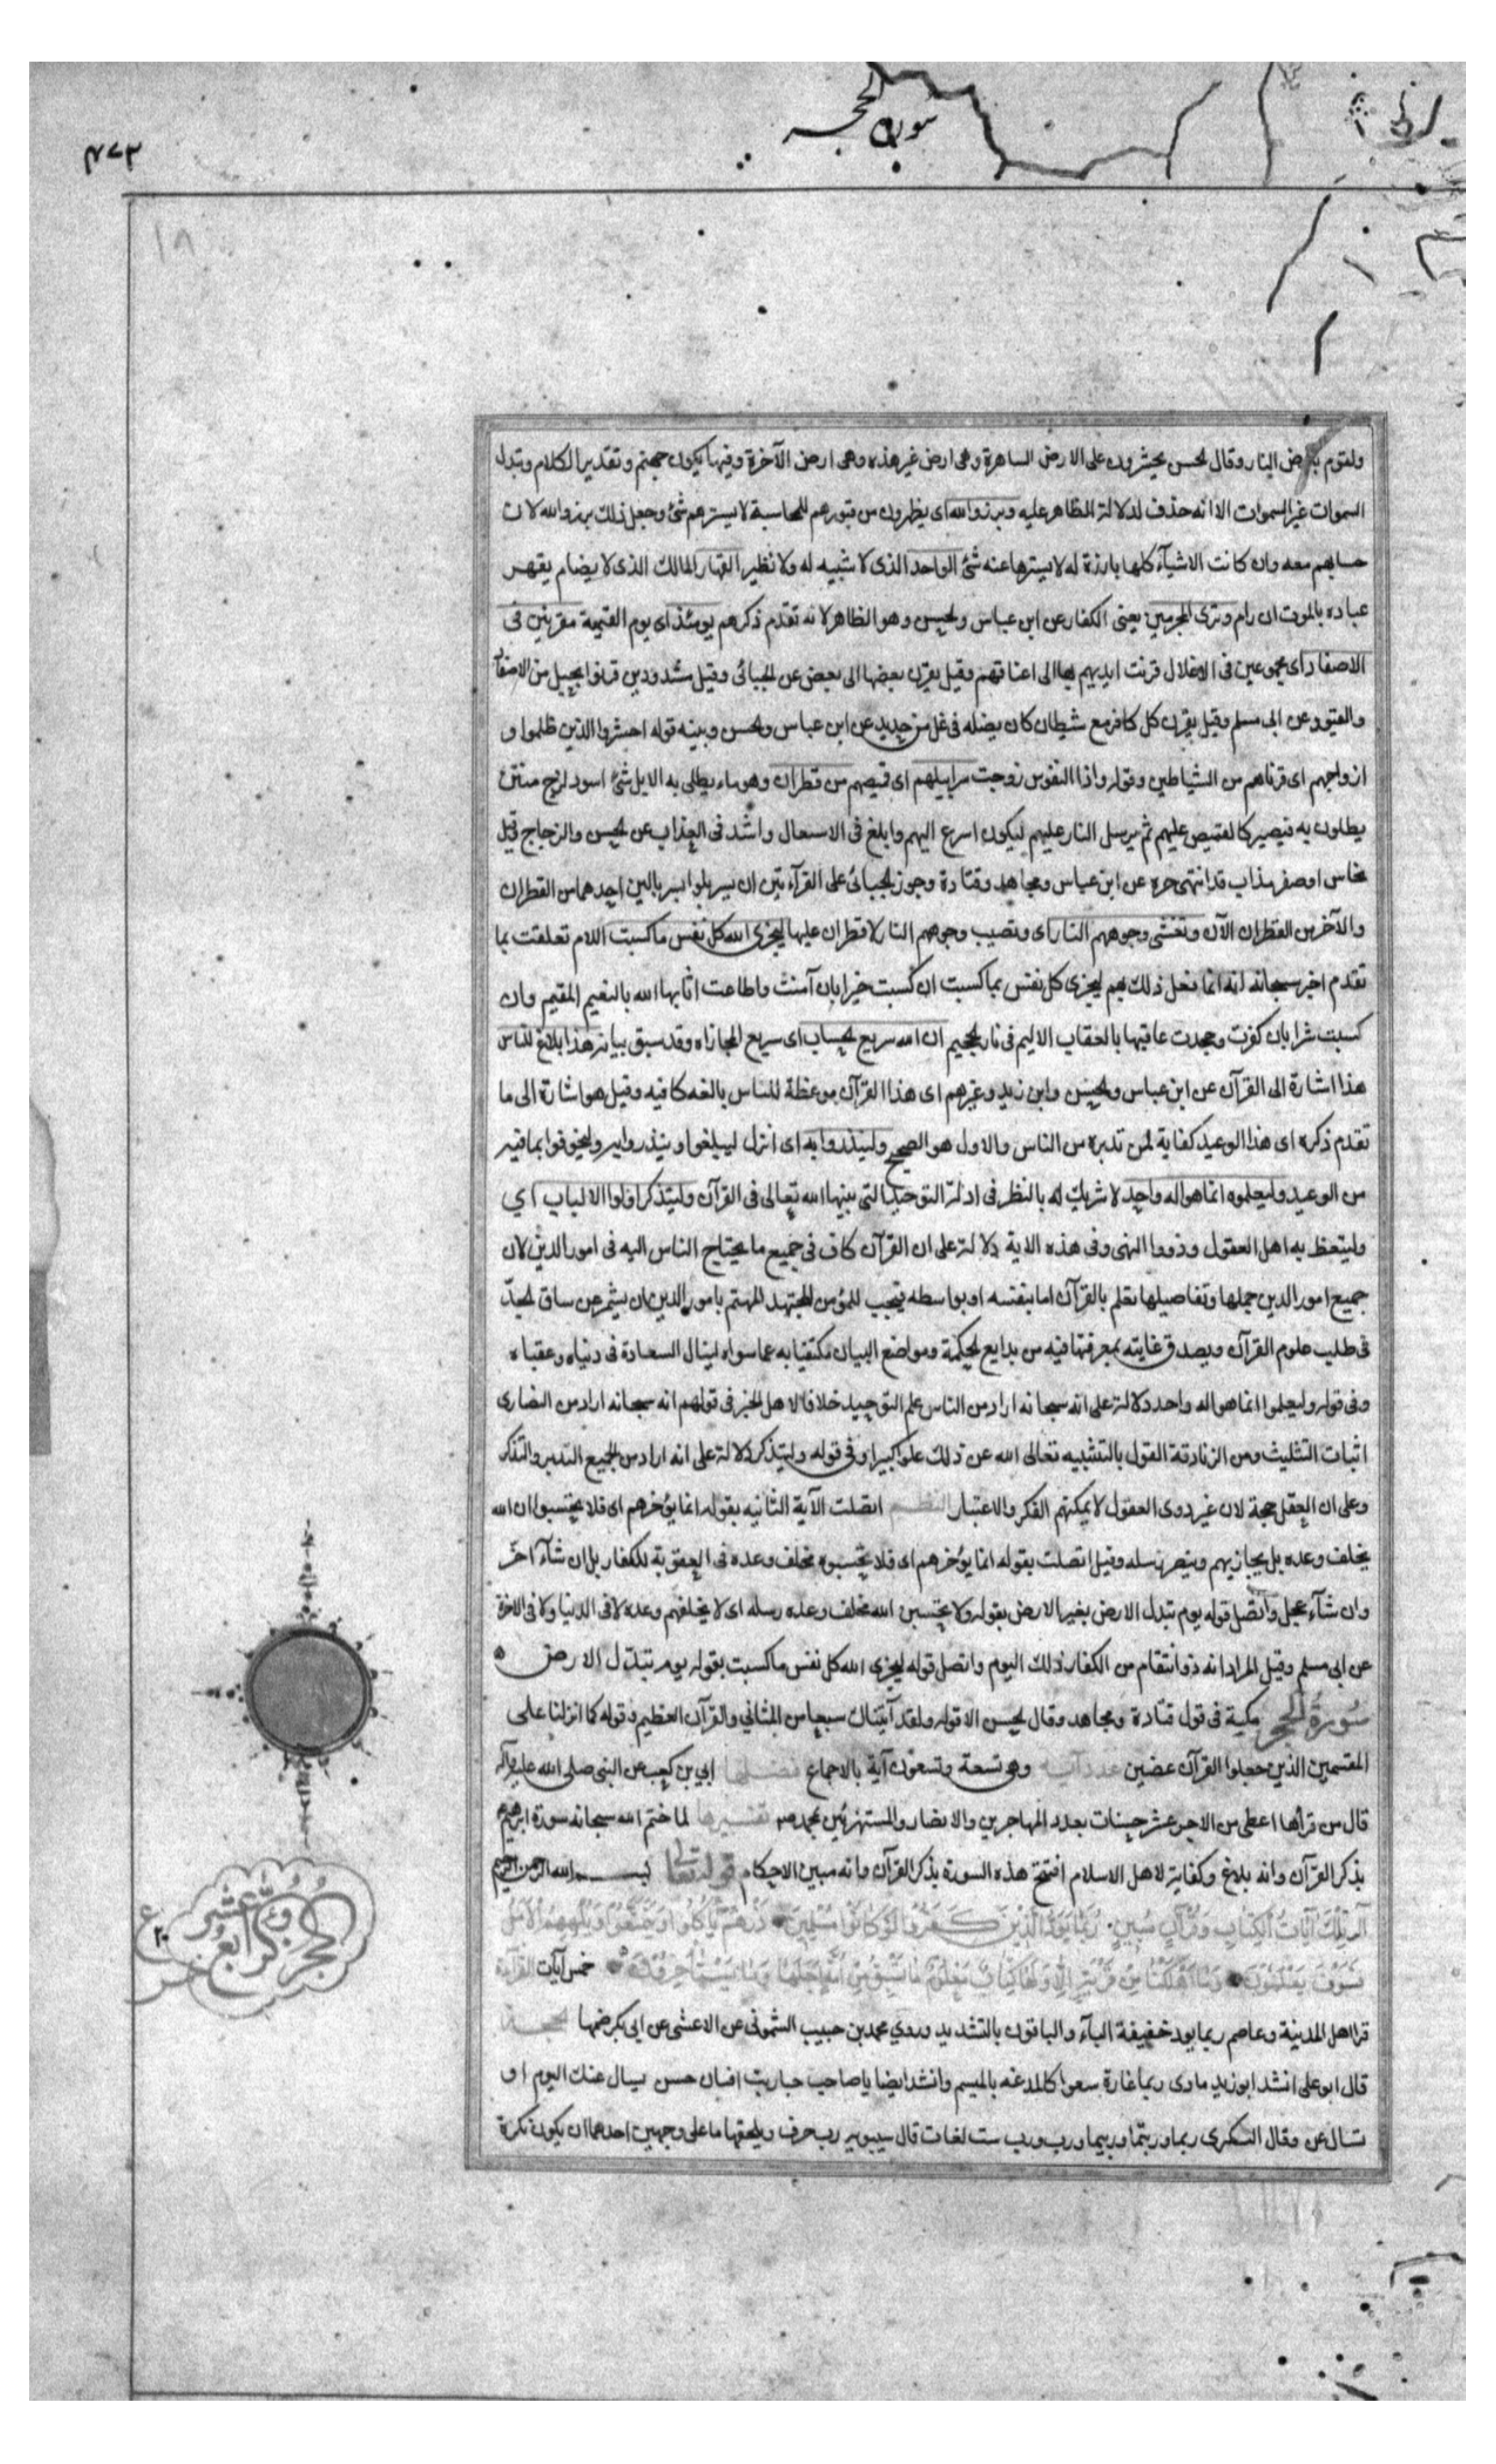 سورة الحجر
٤٧٣
١٨
ولقوم بارض النار وقال الحسن يحشرون على الارض الساهرة وهى ارض غير هذه وهى ارض الآخرة وفيها يكون جهنم وتقدير الكلام وتبدل
السموات غير السموات الا انه حذف لدلالة الظاهر عليه وبرزوا لله اى يظهرون من قبورهم للمحاسبة لا يسترهم شئ وجعل ذلك بروزا لله لان
حسابهم معه وان كانت الاشيآء كلها بارزة له لا يسترها عنه شئ الواحد الذى لا شبيه له ولا نظير القهار المالك الذى لا يضام يقهر
عباده بالموت ان رام وترى المجرمين يعنى الكفار عن ابن عباس والحسن وهو الظاهر لانه تقدم ذكرهم يومئذ اى يوم القيمة مقرنين فى
الاصفاد اى مجموعين فى الاغلال قرنت ايديهم بها الى اعناقهم وقيل يقرن بعضها الى بعض عن الجبائى وقيل مشدودين قرنوا بحبل من الاصفاد
والقيود عن ابى مسلم وقيل يقرن كل كافر مع شيطان كان يضله فى غل من حديد عن ابن عباس والحسن وبينه قوله احشروا الذين ظلموا و
ازواجهم اى قرناهم من الشياطين وقوله واذا النفوس زوجت سرابيلهم اى قميصهم من قطران وهو ماء يطلى به الابل شئ اسود لزج منتن
يطلون به فيصير كالقميص عليهم ثم يرسل النار عليهم ليكون اسرع اليهم وابلغ فى الاسعال واشد فى العذاب عن الحسن والزجاج وقيل
نحاس او صفر مذاب قد انتهى حره عن ابن عباس ومجاهد وقتادة وجوز الجبائى على القرآءتين ان يسربلوا بسربالين احدهما من القطران
والآخر من القطران الآن وتغشى وجوههم النار اى وتصيب وجوههم النار لا قطران عليها ليجزى الله كل نفس ما كسبت اللام تعلقت بما
تقدم اخبر سبحانه انه انما فعل ذلك بهم ليجزى كل نفس بما كسبت ان كسبت خيرا بان آمنت واطاعت اثابها الله بالنعيم المقيم وان
كسبت شرا بان كفرت وجحدت عاقبها بالعقاب الاليم فى نار الجحيم ان الله سريع الحساب اى سريع المجازاه وقد سبق بيانه هذا بلاغ للناس
هذا اشارة الى القرآن عن ابن عباس والحسن وابن زيد وغيرهم اى هذا القرآن موعظة للناس بالغه كافيه وقيل هو اشارة الى ما
تقدم ذكره اى هذا الوعيد كفاية لمن تدبره من الناس والاول هو الصحيح ولينذروا به اى انزل ليبلغوا وينذروا به وليخوفوا بما فيه
من الوعيد وليعلموا انما هو اله واحد لا شريك له بالنظر فى ادلة التوحيد التى بينها الله تعالى فى القرآن وليتذكر اولوا الالباب اي
وليتعظ به اهل العقول وذووا النهى وفى هذه الاية دلالة على ان القرآن كاف فى جميع ما يحتاج الناس اليه فى امور الدين لان
جميع امور الدين جملها وتفاصيلها تعلم بالقرآن اما بنفسه او بواسطه فيجب للمؤمن المجتهد المهتم بامور الدين ان يشمر عن ساق الجدّ
فى طلب علوم القرآن ويصدق عنايته بمعرفتها فيه من بدايع الحكمة ومواضع البيان مكتفيا به عما سواه لينال السعادة فى دنياه وعقباه
وفى قوله وليعلموا انما هو اله واحد دلالة على انه سبحانه اراد من الناس علم التوحيد خلافا لاهل الجبر فى قولهم انه سبحانه اراد من النصارى
اثبات التثليث ومن الزنادقة القول بالتشبيه تعالى الله عن ذلك علوا كبيرا وفى قوله وليتذكر دلالة على انه اراد من الجميع التدبر والتذكر
وعلى ان العقل حجة لان غير ذوى العقول لا يمكنهم الفكر والاعتبار النظم اتصلت الآية الثانيه بقوله انما يؤخرهم اى فلا يحتسبوا ان الله
يخلف وعده بل يجازيهم وينصر رسله وقيل اتصلت بقوله انما يؤخرهم اى فلا تحسبوه مخلف وعده فى العقوبة للكفار بل ان شآء اخّر
وان شآء عجل واتصل قوله يوم تبدل الارض بغير الارض بقوله ولا تحسبن الله مخلف وعده رسله اى لا يخلفهم وعده لا فى الدنيا ولا فى الآخرة
عن ابى مسلم وقيل المراد انه ذو انتقام من الكفار ذلك اليوم واتصل قوله ليجزى الله كل نفس ما كسبت بقوله يوم تبدّل الارض
سورة الحجر مكية فى قول قتادة ومجاهد وقال الحسن الا قوله ولقد آتيناك سبعا من المثاني والقرآن العظيم وقوله كما انزلنا على
المقتسمين الذين جعلوا القرآن عضين عدد آيها وهى تسعة وتسعون آية بالاجماع فضلها ابي بن كعب عن النبى صلى الله عليه وآله
قال من قرأها اعطى من الاجر عشر حسنات بعدد المهاجرين والانصار والمستهزئين بمحمد ص تفسيرها لما ختم الله سبحانه سورة ابرهيم
بذكر القرآن وانه بلاغ وكفاية لاهل الاسلام افتتح هذه السورة بذكر القرآن وانه مبين الاحكام قوله تعالى بسم الله الرحمن الرحيم
الر تِلْكَ آيَاتُ الْكِتَابِ وَقُرْآنٍ مُبِينٍ رُبَمَا يَوَدُّ الَّذِينَ كَفَرُوا لَوْ كَانُوا مُسْلِمِينَ ذَرْهُمْ يَأْكُلُوا وَيَتَمَتَّعُوا وَيُلْهِهِمُ الْأَمَلُ
فَسَوْفَ يَعْلَمُونَ وَمَا أَهْلَكْنَا مِنْ قَرْيَةٍ إِلَّا وَلَهَا كِتَابٌ مَعْلُومٌ مَا تَسْبِقُ مِنْ أُمَّةٍ أَجَلَهَا وَمَا يَسْتَأْخِرُونَ خمس آيات القراءة
قرا اهل المدينة وعاصم ربما يود خفيفة البآء والباقون بالتشديد وروي محمد بن حبيب الشمونى عن الاعشى عن ابى بكر ضمها الحجة
قال ابو على انشد ابو زيد ماوى ربما غارة سعوا كالمدغه بالميسم وانشد ايضا يا صاحب حباربت انسان حسن يسال عنك اليوم او
تسال عن وقال السكرى ربما وربتما وربما ورب ورب ست لغات قال سيبويه رب حرف ويلحقها ما على وجهين احدهما ان يكون نكرة
الحجر